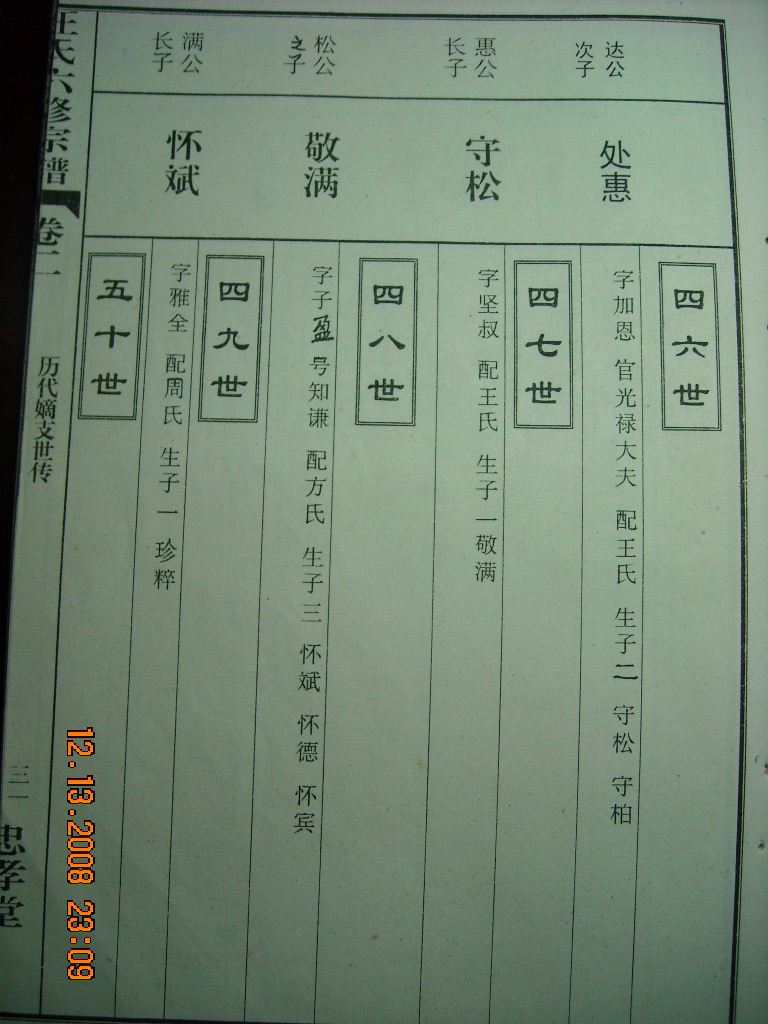 四六世
达公
次子
处惠
字加恩 官光禄大夫 配王氏 生子二 守松 守柏
四七世
惠公
长子
守松
字坚叔 配王氏 生子一敬满
四八世
松公
之子
敬满
字子盈 号知谦 配方氏 生子三 怀斌 怀德 怀宾
四九世
满公
长子
怀斌
字雅全 配周氏 生子一 珍粹
五十世
汪氏六修宗谱
卷二
历代嫡支世传
三一
忠孝堂
12.13.2008 23:09